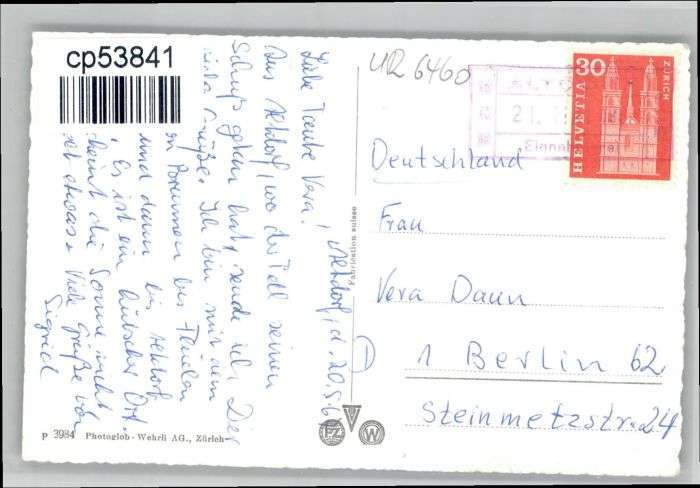 cp53841
UR 6460
30
HELVETIA
ZÜRICH
21.
Altdorf, d. 20.5.6
Liebe Tante Vera!
Aus Altdorf, wo der Tell seinen
Schuß getan hat, sende ich Dir
viele Grüße. Ich bin mit dem
in Brunnen bis Flüelen
und dann bis Altdorf
. Es ist ein hübscher Ort.
scheint die Sonne nicht
etwas. Viele Grüße von
Sigrid
Deutschland
Frau
Vera Daun
1 Berlin 62
Steinmetzstr. 24
D
Fabrication suisse
PZ
W
P 3984 Photoglob-Wehrli AG., Zürich